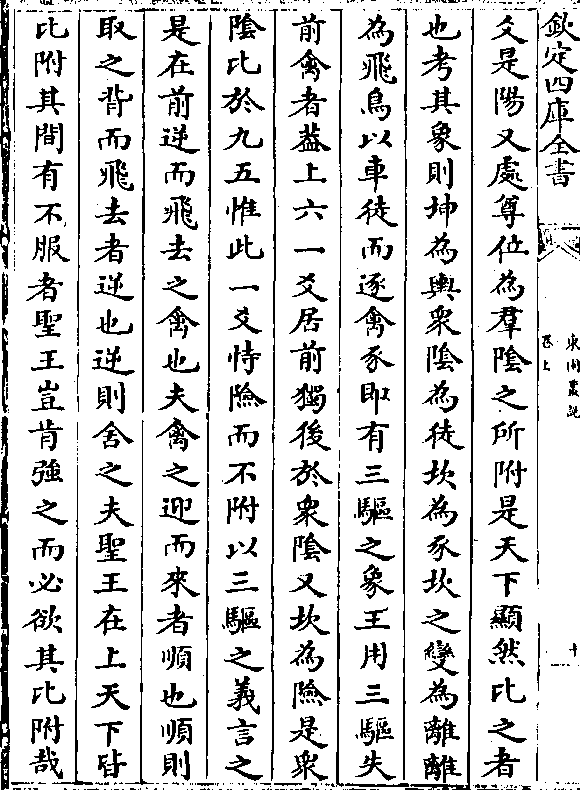 欽定四庫全書
爻是陽又處尊位為羣陰之所附是天下顯然比之者
也考其象則坤為輿衆陰為徒坎為豕坎之變為離離
為飛鳥以車徒而逐禽豕即有三驅之象王用三驅失
前禽者葢上六一爻居前獨後於衆陰又坎為險是衆
陰比於九五惟此一爻恃險而不附以三驅之義言之
是在前逆而飛去之禽也夫禽之迎而來者順也順則
取之背而飛去者逆也逆則舍之夫聖王在上天下皆
比附其間有不服者聖王豈肯強之而必欲其比附哉
卷上
十